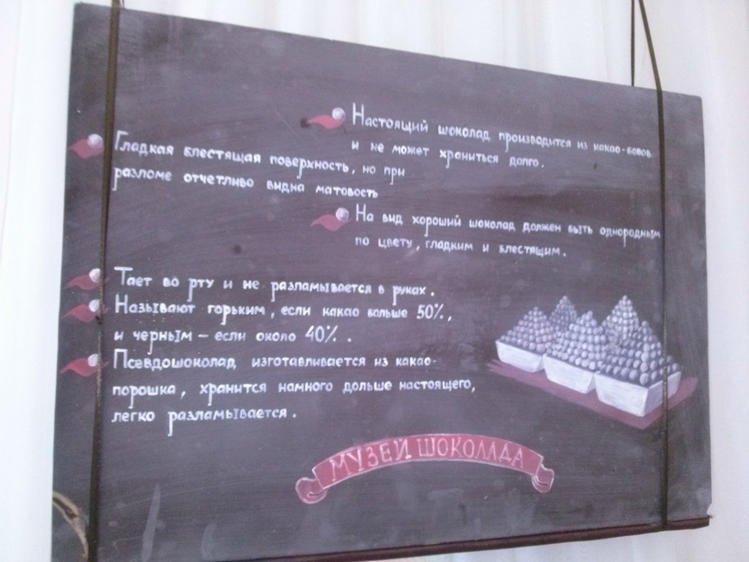 Настоящий шоколад производится из какао-бобов
и не может храниться долго.
Гладкая блестящая поверхность, но при
разломе отчетливо видна матовость
На вид хороший шоколад должен быть однородным
по цвету, гладким и блестящим.
Тает во рту и не разламывается в руках.
Называют горьким, если какао больше 50%,
и черным – если около 40%.
Псевдошоколад изготавливается из какао-
порошка, хранится намного дольше настоящего,
легко разламывается.
МУЗЕЙ ШОКОЛАДА